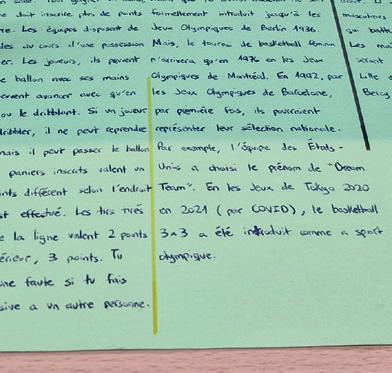 doit inscrire plus de points
re. Les équipes disposent de
les au cours d'une possession
er. Les joueurs, ils peuvent
e ballon avec ses mains
avancer avec qu'en
ou le dribblant. Si un joueur
dribbler, il ne peut reprendre
mais il peut passer le ballon
paniers inscrits valent un
ints différent selon l'endroit
st effectué. Les tirs tirés
e la ligne valent 2 points
érieur, 3 points. Tu
une faute si tu fais
sive a un autre personne.
formellement introduit jusqu'à les
Jeux Olympiques de Berlin 1936.
Mais, le tournoi de basketball féminin
n'arrivera qu'en 1976 en les Jeux
Olympiques de Montréal. En 1992, par
les Jeux Olympiques de Barcelone,
par première fois, ils pouvaient
représenter leur sélection nationale.
Par exemple, l'équipe des États-
Unis a choisi le prénom de "Dream
Team". En les Jeux de Tokyo 2020
en 2021 (par COVID), le basketball
3x3 a été introduit comme a sport
olympique.
masculin
qui batte
Les mai
seront
Lille
Bercy